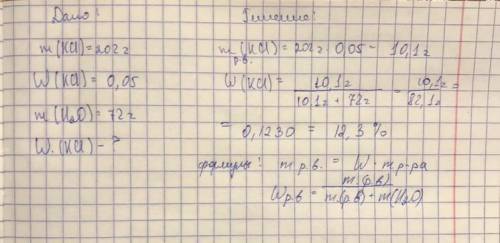 Дано:
m(KCl)=202г
W(KCl)=0,05
m(H₂O)=72г
W(KCl)-?
Решение:
m р.в.(KCl)=202г·0,05= 10,1г
W(KCl)= 10,1г / 10,1г+72г = 10,1г / 82,1г =
= 0,1230 = 12,3%
формулы: m р.в. = W · m р-ра
W р.в = m(р.в) / m(р.в)+m(H₂O)